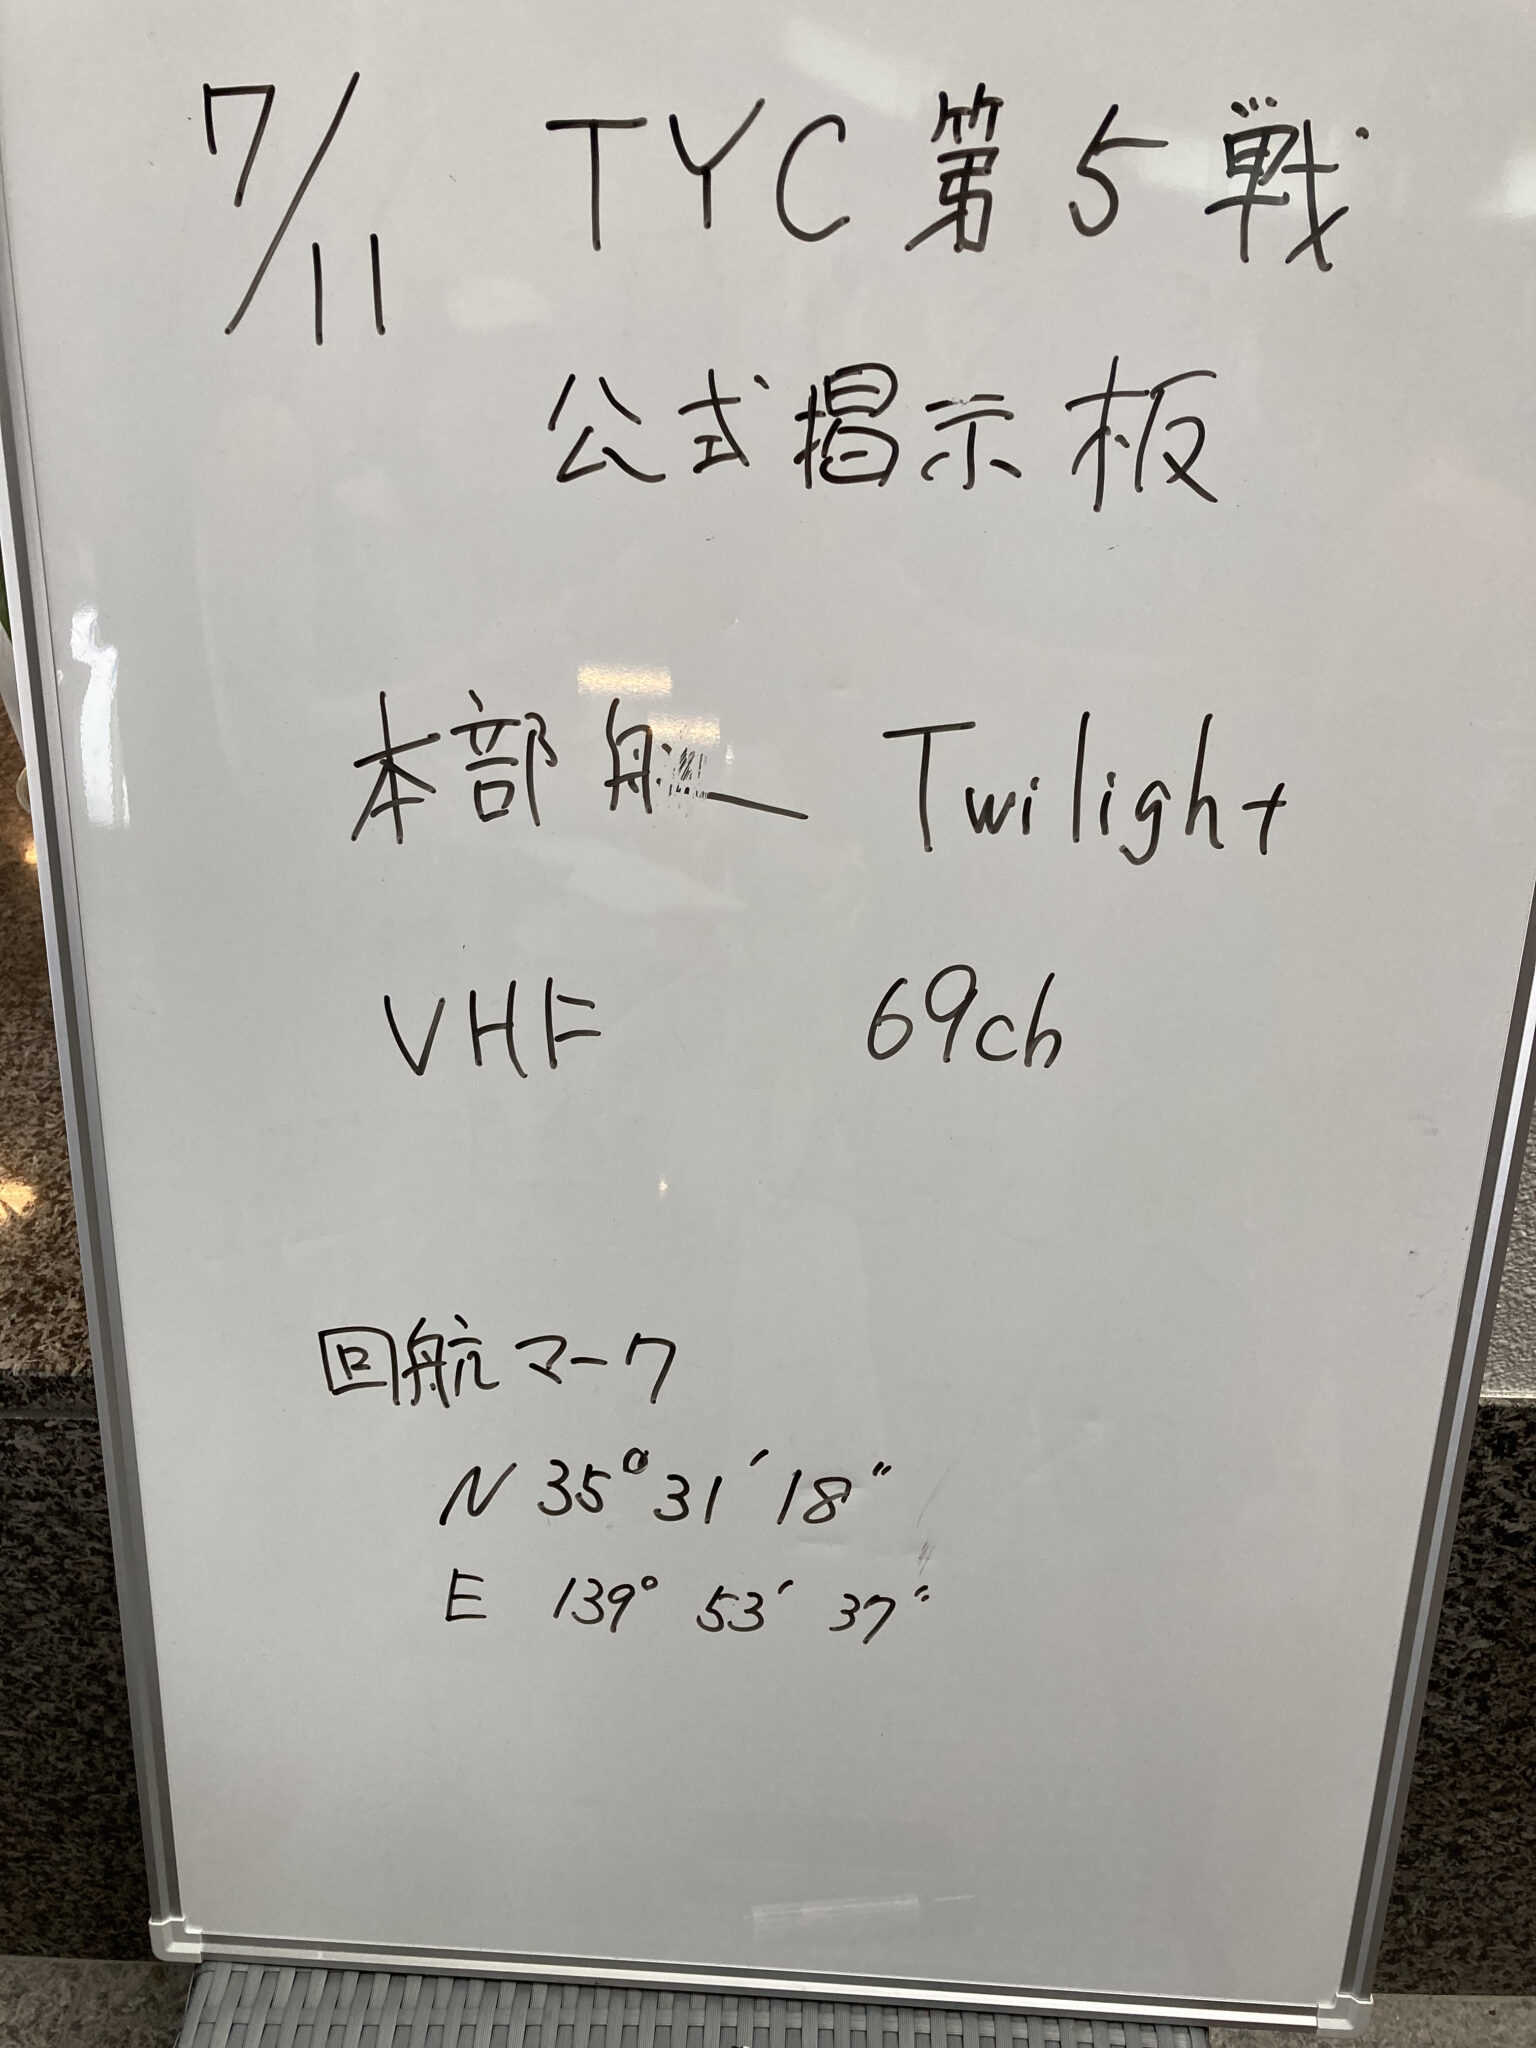 7/11 TYC 第5戦
公式掲示板
本部船 Twilight
VHF 69ch
回航マーク
N 35°31′18″
E 139°53′37″